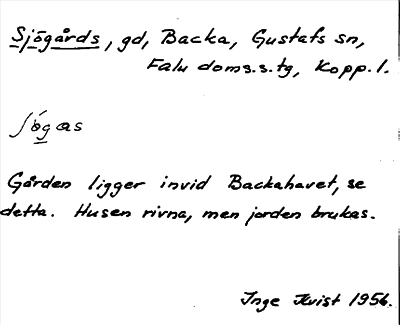 Sjögårds, gd, Backa, Gustafs sn,
Falu doms.s.tg, Kopp. l.
Gården ligger invid Backahavet, se
detta. Husen rivna, men jorden brukas.
Inge Kvist 1956.